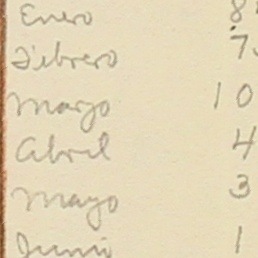 Enero 8
Febrero 7
Março 10
Abril 4
Mayo 3
Junio 1